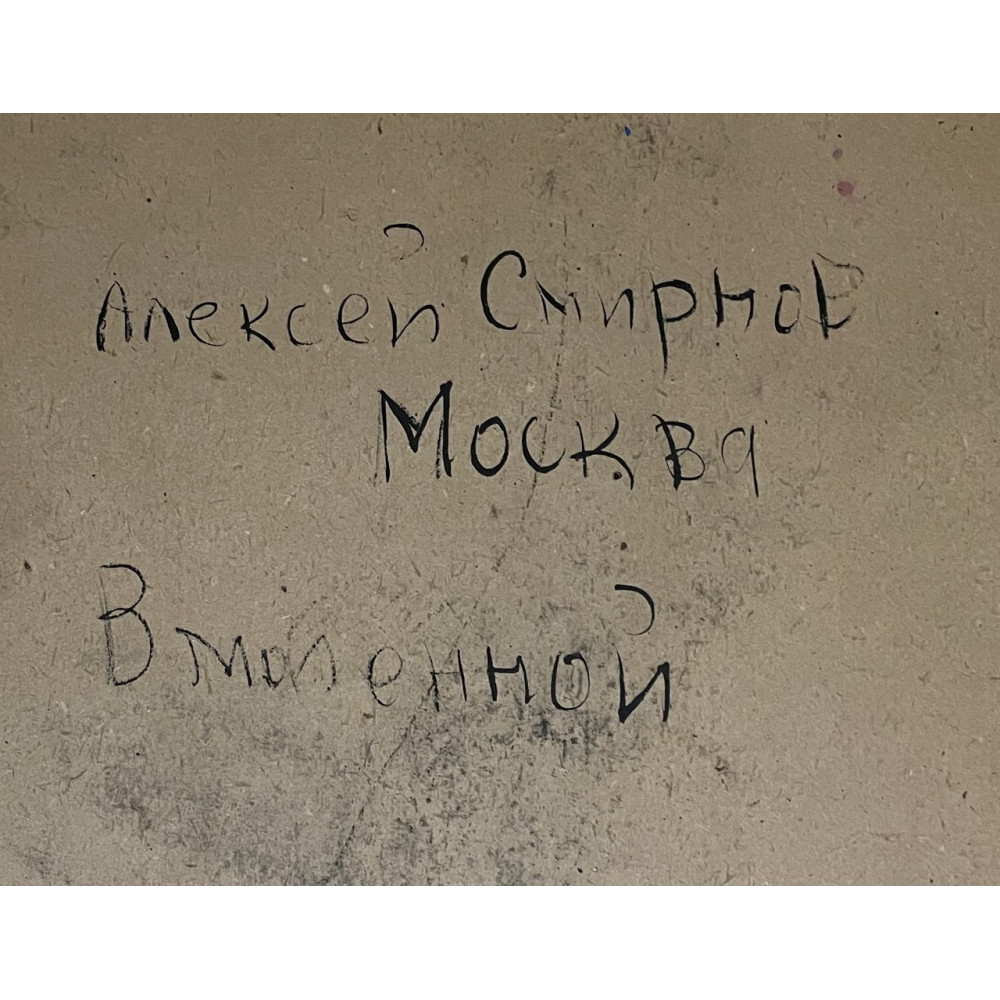 Алексей Смирнов
Москва
В моленной